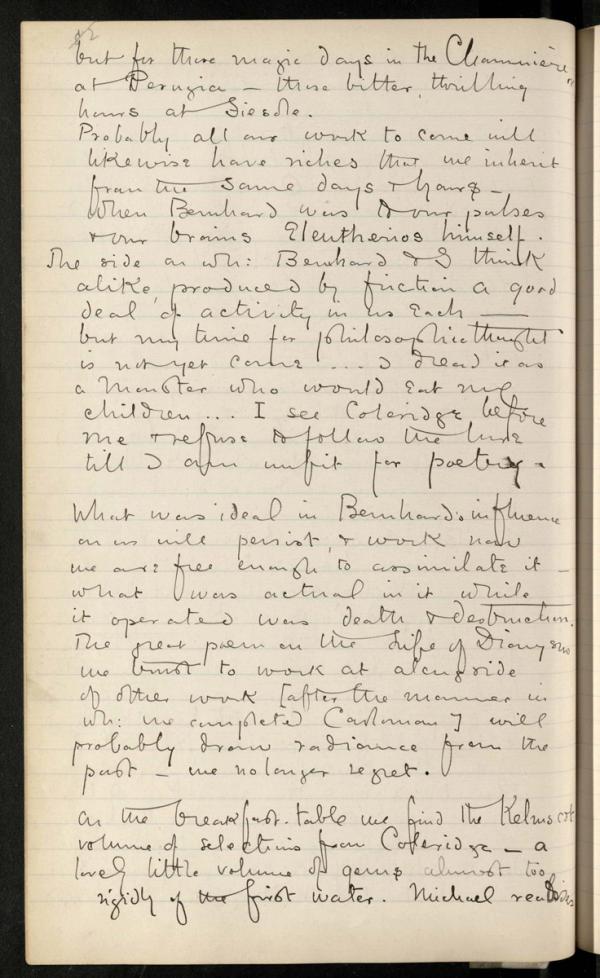 52
but for those magic days in the Chaumière
at Perugia – those bitter, thrilling
hours at Fiesole.
Probably all our work to come will
likewise have riches that we inherit
from the same days & hours –
When Bernhard was to our pulses
& our brains Eleutherios himself.
The side on wh: Bernhard & I think
alike, produced by friction a good
deal of activity in us each —
but my time for philosophic thought
is not yet come ... I dread it as
a Monster who would eat my
children ... I see Coleridge before
me & refuse to follow the lure
till I am unfit for poetry.
What was ideal in Bernhard's influence
on us will persist, & work now
we are free enough to assimilate it –
what was actual in it while
it operated was death & destruction.
The great poem on the Life of Dionysus
we trust to work at alongside
of other work [after the manner in
wh: we completed Carloman] will
probably draw radiance from the
past – we no longer regret.
On the breakfast-table we find the Kelmscott
volume of selections from Coleridge – a
lovely little volume of gems almost too
rigidly of the first water. Michael reads